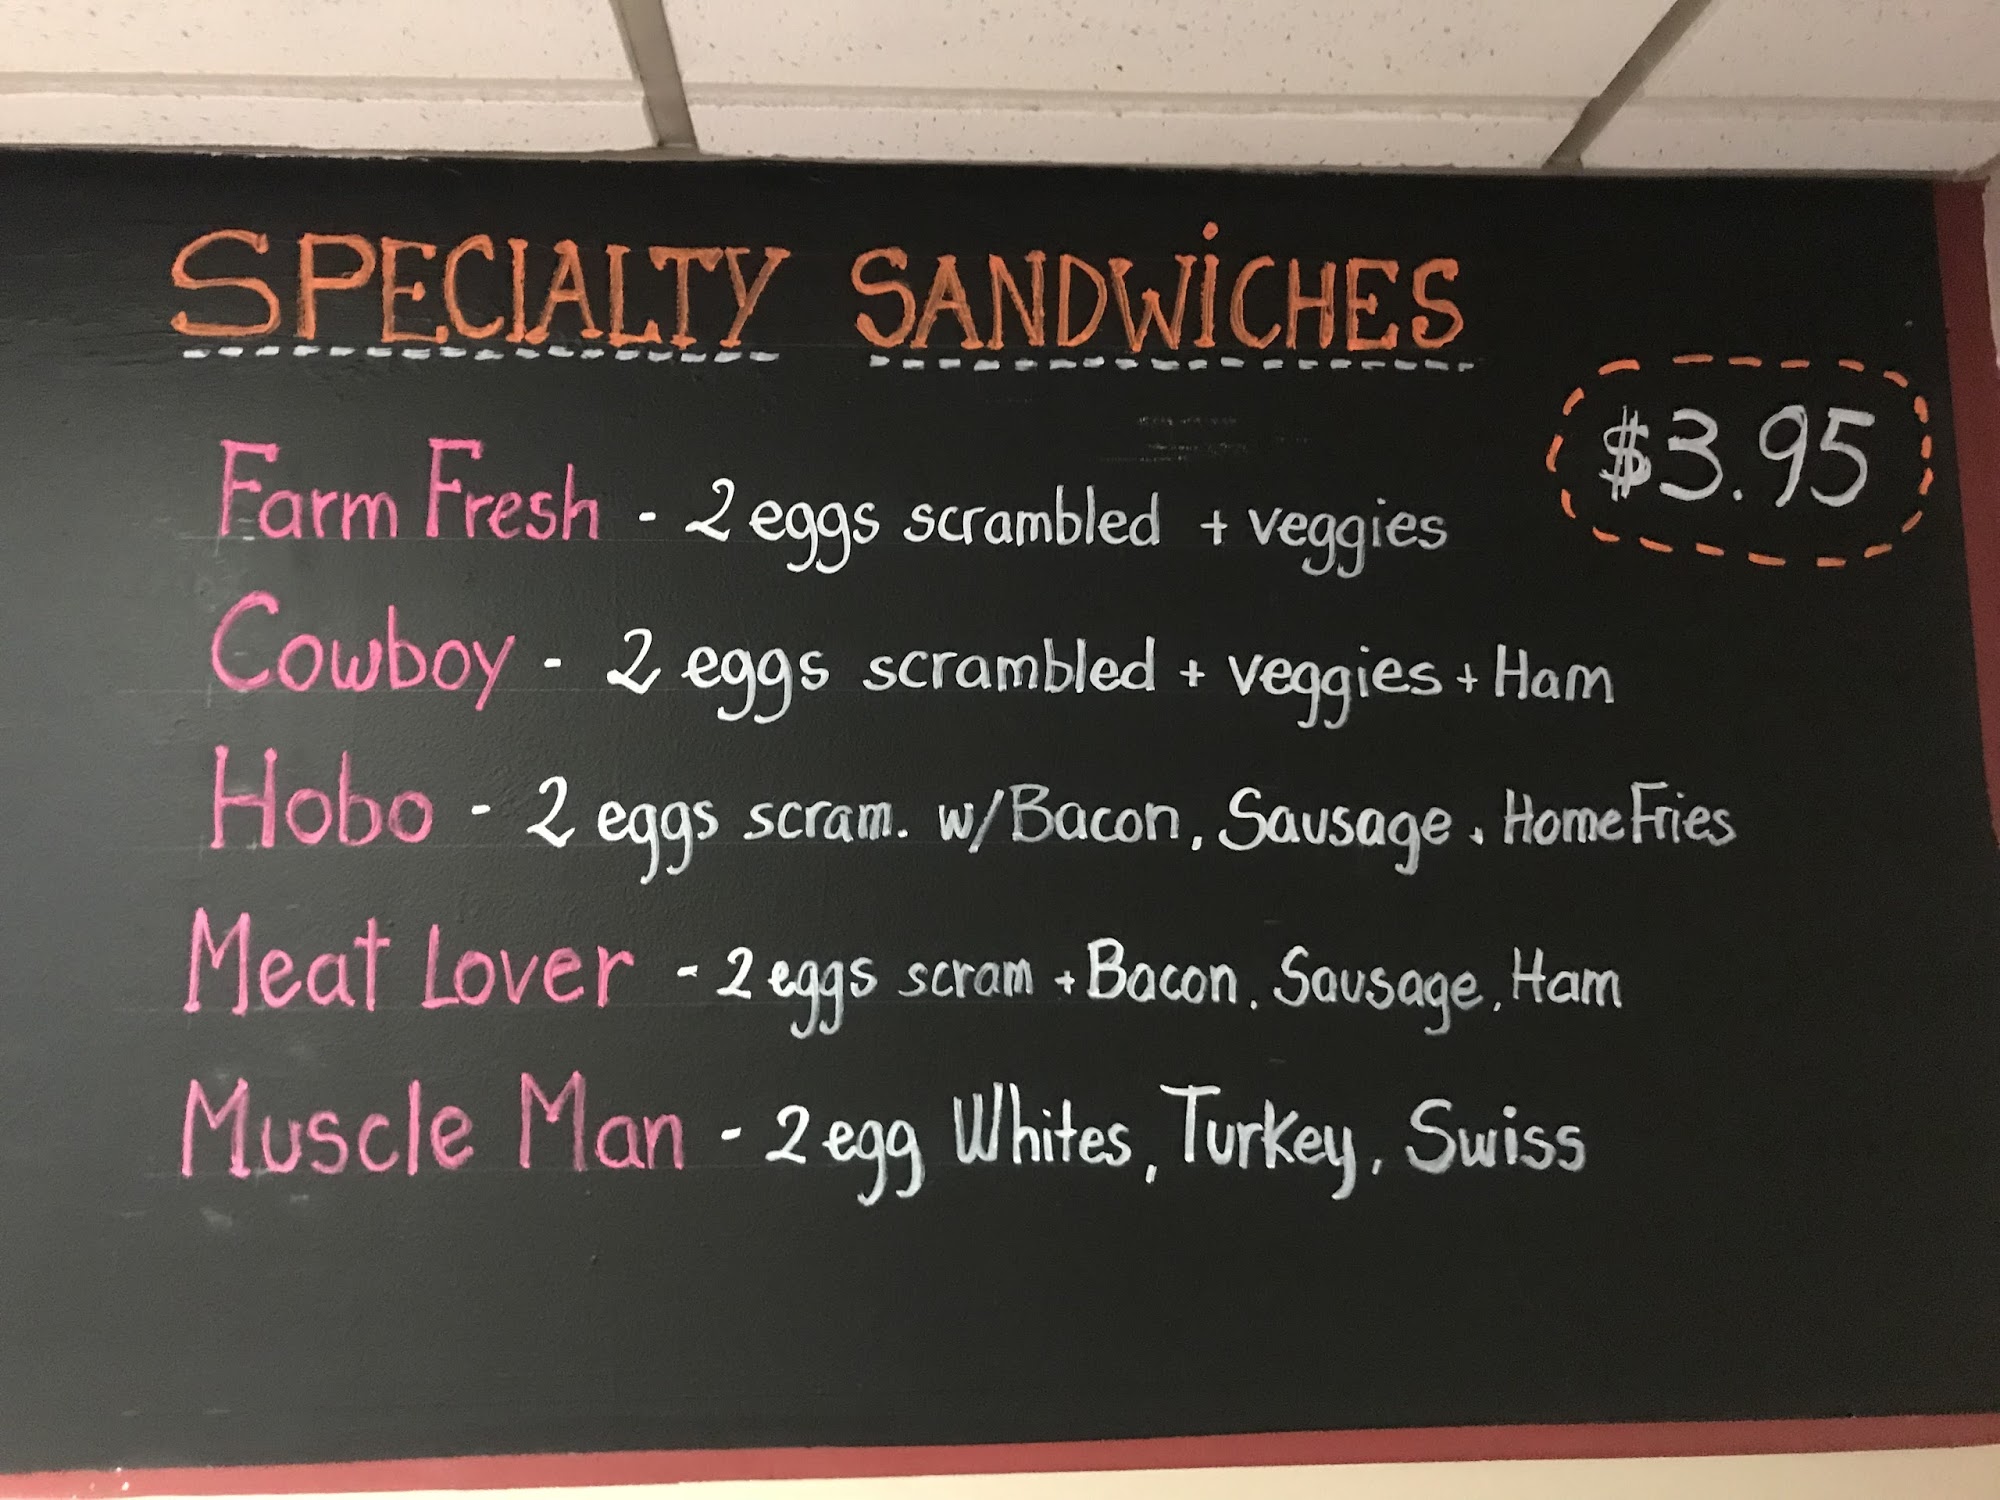 SPECIALTY SANDWiCHES
$3.95
Farm Fresh - 2 eggs scrambled + veggies
Cowboy - 2 eggs scrambled + veggies + Ham
Hobo - 2 eggs scram. w/Bacon, Sausage, Home Fries
Meat Lover - 2 eggs scram + Bacon, Sausage, Ham
Muscle Man - 2 egg Whites, Turkey, Swiss